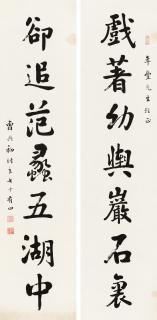 戲著幼輿巖石裏
先生
卻追范蠡五湖中
曹典初時年七十有四